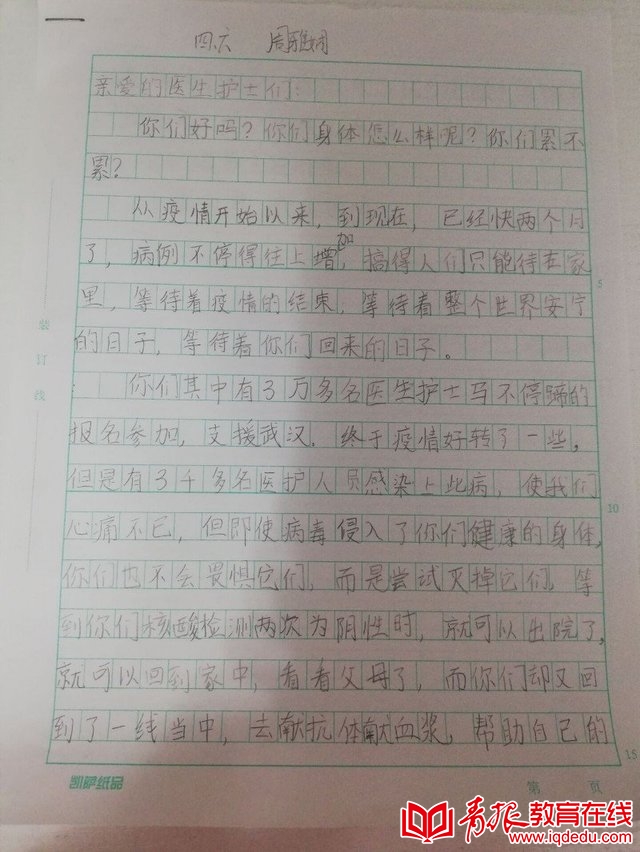 四.六 周雅娟
亲爱的医生护士们:
你们好吗?你们身体怎么样呢?你们累不
累?
从疫情开始以来,到现在,已经快两个月
了,病例不停得往上增加,搞得人们只能待在家
里,等待着疫情的结束,等待着整个世界安宁
的日子,等待着你们回来的日子。
你们其中有3万多名医生护士马不停蹄的
报名参加,支援武汉.终于疫情好转了一些,
但是有3千多名医护人员感染上此病,使我们
心痛不已,但即使病毒侵入了你们健康的身体,
你们也不会畏惧它们,而是尝试灭掉它们,等
到你们核酸检测两次为阴性时,就可以出院了,
就可以回到家中,看看父母了,而你们却又回
到了一线当中,去献抗体献血浆,帮助自己的
装订线
5
10
15
凯萨纸品
第 页
青报教育在线
www.iqdedu.com